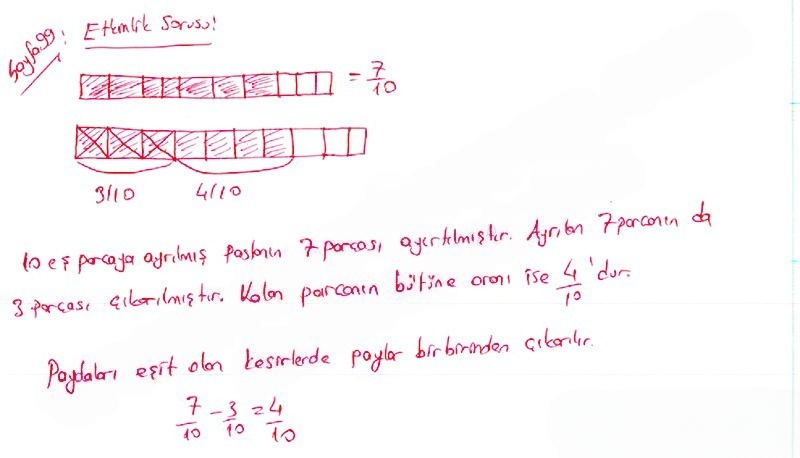 Sayfa 99: Etkinlik Sorusu!
= 7/10
3/10 4/10
10 eş parçaya ayrılmış pastanın 7 parçası ayırtılmıştır. Ayrılan 7 parçanın da
3 parçası çıkarılmıştır. Kalan parçanın bütüne oranı ise 4/10'dur.
Paydaları eşit olan kesirlerde paylar birbirinden çıkarılır.
7/10 - 3/10 = 4/10